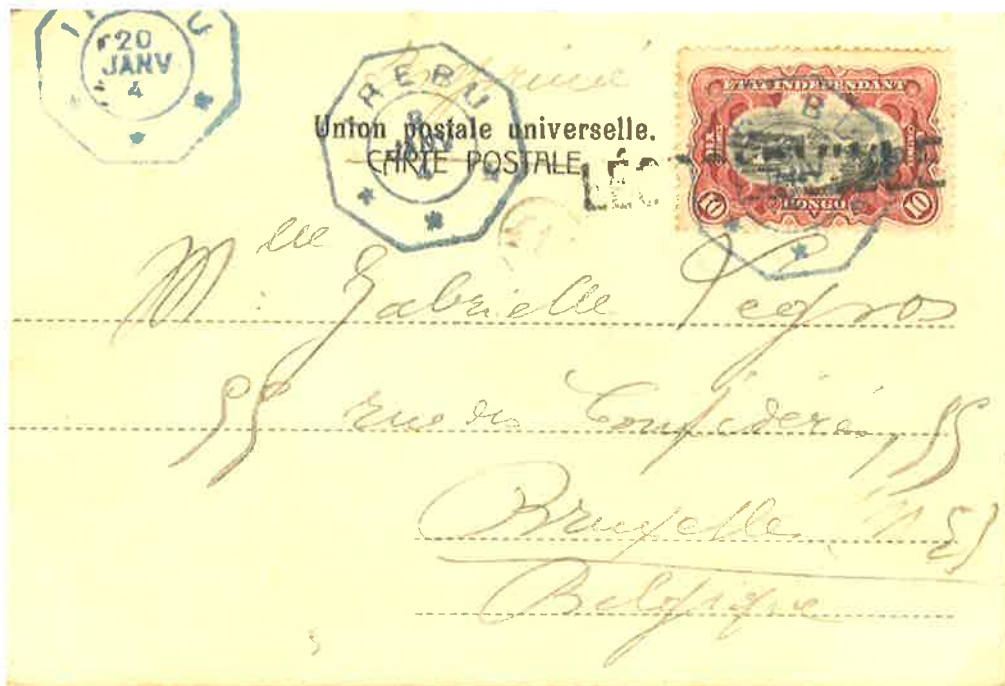 IREBU
20
JANV
4
Imprimé
IREBU
8
JANV
4
Union postale universelle.
CARTE POSTALE
LÉOPOLDVILLE
ÉTAT INDÉPENDANT
CONGO
10 10
Mlle Gabrielle Legros
55 rue des Confédérés, 55
Bruxelles N E
Belgique